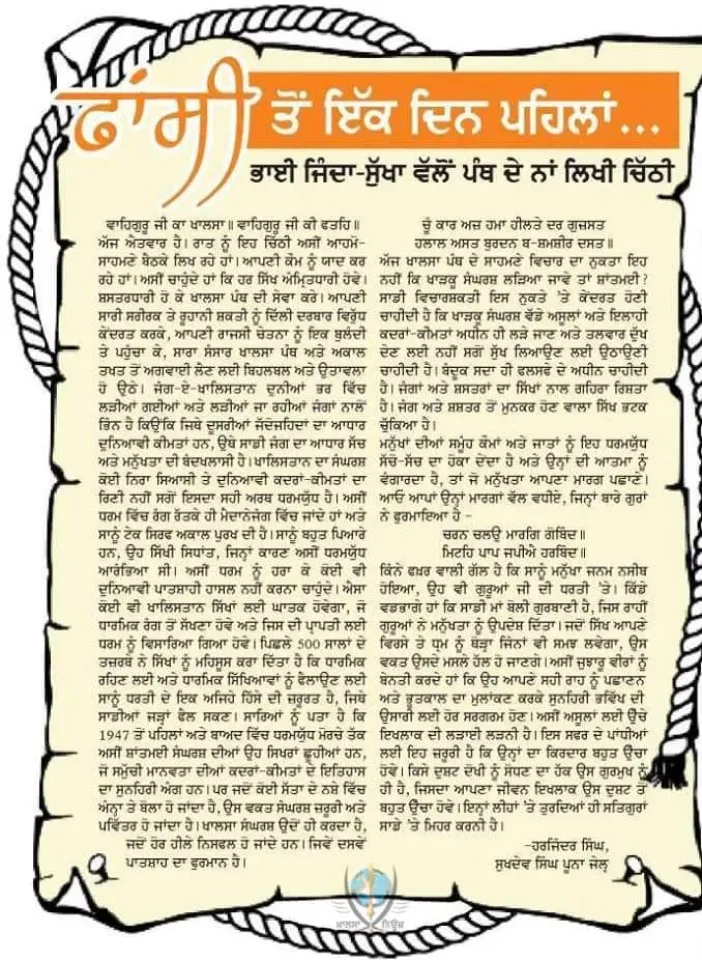 ਫਾਂਸੀ ਤੋਂ ਇੱਕ ਦਿਨ ਪਹਿਲਾਂ...
ਭਾਈ ਜਿੰਦਾ-ਸੁੱਖਾ ਵੱਲੋਂ ਪੰਥ ਦੇ ਨਾਂ ਲਿਖੀ ਚਿੱਠੀ
ਵਾਹਿਗੁਰੂ ਜੀ ਕਾ ਖਾਲਸਾ॥ ਵਾਹਿਗੁਰੂ ਜੀ ਕੀ ਫਤਹਿ॥
ਅੱਜ ਐਤਵਾਰ ਹੈ। ਰਾਤ ਨੂੰ ਇਹ ਚਿੱਠੀ ਅਸੀਂ ਆਹਮੋ-
ਸਾਹਮਣੇ ਬੈਠਕੇ ਲਿਖ ਰਹੇ ਹਾਂ। ਆਪਣੀ ਕੌਮ ਨੂੰ ਯਾਦ ਕਰ
ਰਹੇ ਹਾਂ। ਅਸੀਂ ਚਾਹੁੰਦੇ ਹਾਂ ਕਿ ਹਰ ਸਿੱਖ ਅੰਮ੍ਰਿਤਧਾਰੀ ਹੋਵੇ।
ਸ਼ਸਤਰਧਾਰੀ ਹੋ ਕੇ ਖਾਲਸਾ ਪੰਥ ਦੀ ਸੇਵਾ ਕਰੇ। ਆਪਣੀ
ਸਾਰੀ ਸਰੀਰਕ ਤੇ ਰੂਹਾਨੀ ਸ਼ਕਤੀ ਨੂੰ ਦਿੱਲੀ ਦਰਬਾਰ ਵਿਰੁੱਧ
ਕੇਂਦਰਤ ਕਰਕੇ, ਆਪਣੀ ਰਾਜਸੀ ਚੇਤਨਾ ਨੂੰ ਇਕ ਬੁਲੰਦੀ
ਤੇ ਪਹੁੰਚਾ ਕੇ, ਸਾਰਾ ਸੰਸਾਰ ਖਾਲਸਾ ਪੰਥ ਅਤੇ ਅਕਾਲ
ਤਖਤ ਤੋਂ ਅਗਵਾਈ ਲੈਣ ਲਈ ਬਿਹਲਬਲ ਅਤੇ ਉਤਾਵਲਾ
ਹੋ ਉਠੇ। ਜੰਗ-ਏ-ਖਾਲਿਸਤਾਨ ਦੁਨੀਆਂ ਭਰ ਵਿੱਚ
ਲੜੀਆਂ ਗਈਆਂ ਅਤੇ ਲੜੀਆਂ ਜਾ ਰਹੀਆਂ ਜੰਗਾਂ ਨਾਲੋਂ
ਭਿੰਨ ਹੈ ਕਿਉਂਕਿ ਜਿਥੇ ਦੂਸਰੀਆਂ ਜੱਦੋਜਹਿਦਾਂ ਦਾ ਆਧਾਰ
ਦੁਨਿਆਵੀ ਕੀਮਤਾਂ ਹਨ, ਉਥੇ ਸਾਡੀ ਜੰਗ ਦਾ ਆਧਾਰ ਸੱਚ
ਅਤੇ ਮਨੁੱਖਤਾ ਦੀ ਬੰਦਖਲਾਸੀ ਹੈ। ਖਾਲਿਸਤਾਨ ਦਾ ਸੰਘਰਸ਼
ਕੋਈ ਨਿਰਾ ਸਿਆਸੀ ਤੇ ਦੁਨਿਆਵੀ ਕਦਰਾਂ-ਕੀਮਤਾਂ ਦਾ
ਰਿਣੀ ਨਹੀਂ ਸਗੋਂ ਇਸਦਾ ਸਹੀ ਅਰਥ ਧਰਮਯੁੱਧ ਹੈ। ਅਸੀਂ
ਧਰਮ ਵਿੱਚ ਰੰਗ ਰੱਤਕੇ ਹੀ ਮੈਦਾਨੇਜੰਗ ਵਿੱਚ ਜਾਂਦੇ ਹਾਂ ਅਤੇ
ਸਾਨੂੰ ਟੇਕ ਸਿਰਫ ਅਕਾਲ ਪੁਰਖ ਦੀ ਹੈ। ਸਾਨੂੰ ਬਹੁਤ ਪਿਆਰੇ
ਹਨ, ਉਹ ਸਿੱਖੀ ਸਿਧਾਂਤ, ਜਿਨ੍ਹਾਂ ਕਾਰਣ ਅਸੀਂ ਧਰਮਯੁੱਧ
ਆਰੰਭਿਆ ਸੀ। ਅਸੀਂ ਧਰਮ ਨੂੰ ਹਰਾ ਕੇ ਕੋਈ ਵੀ
ਦੁਨਿਆਵੀ ਪਾਤਸ਼ਾਹੀ ਹਾਸਲ ਨਹੀਂ ਕਰਨਾ ਚਾਹੁੰਦੇ। ਐਸਾ
ਕੋਈ ਵੀ ਖਾਲਿਸਤਾਨ ਸਿੱਖਾਂ ਲਈ ਘਾਤਕ ਹੋਵੇਗਾ, ਜੋ
ਧਾਰਮਿਕ ਰੰਗ ਤੋਂ ਸੱਖਣਾ ਹੋਵੇ ਅਤੇ ਜਿਸ ਦੀ ਪ੍ਰਾਪਤੀ ਲਈ
ਧਰਮ ਨੂੰ ਵਿਸਾਰਿਆ ਗਿਆ ਹੋਵੇ। ਪਿਛਲੇ 500 ਸਾਲਾਂ ਦੇ
ਤਜ਼ਰਬੇ ਨੇ ਸਿੱਖਾਂ ਨੂੰ ਮਹਿਸੂਸ ਕਰਾ ਦਿੱਤਾ ਹੈ ਕਿ ਧਾਰਮਿਕ
ਰਹਿਣ ਲਈ ਅਤੇ ਧਾਰਮਿਕ ਸਿੱਖਿਆਵਾਂ ਨੂੰ ਫੈਲਾਉਣ ਲਈ
ਸਾਨੂੰ ਧਰਤੀ ਦੇ ਇਕ ਅਜਿਹੇ ਹਿੱਸੇ ਦੀ ਜ਼ਰੂਰਤ ਹੈ, ਜਿਥੇ
ਸਾਡੀਆਂ ਜੜ੍ਹਾਂ ਫੈਲ ਸਕਣ। ਸਾਰਿਆਂ ਨੂੰ ਪਤਾ ਹੈ ਕਿ
1947 ਤੋਂ ਪਹਿਲਾਂ ਅਤੇ ਬਾਅਦ ਵਿੱਚ ਧਰਮਯੁੱਧ ਮੋਰਚੇ ਤੱਕ
ਅਸੀਂ ਸ਼ਾਂਤਮਈ ਸੰਘਰਸ਼ ਦੀਆਂ ਉਹ ਸਿਖਰਾਂ ਛੂਹੀਆਂ ਹਨ,
ਜੋ ਸਮੁੱਚੀ ਮਾਨਵਤਾ ਦੀਆਂ ਕਦਰਾਂ-ਕੀਮਤਾਂ ਦੇ ਇਤਿਹਾਸ
ਦਾ ਸੁਨਹਿਰੀ ਅੰਗ ਹਨ। ਪਰ ਜਦੋਂ ਕੋਈ ਸੱਤਾ ਦੇ ਨਸ਼ੇ ਵਿੱਚ
ਅੰਨ੍ਹਾ ਤੇ ਬੋਲਾ ਹੋ ਜਾਂਦਾ ਹੈ, ਉਸ ਵਕਤ ਸੰਘਰਸ਼ ਜ਼ਰੂਰੀ ਅਤੇ
ਪਵਿੱਤਰ ਹੋ ਜਾਂਦਾ ਹੈ। ਖਾਲਸਾ ਸੰਘਰਸ਼ ਉਦੋਂ ਹੀ ਕਰਦਾ ਹੈ,
ਜਦੋਂ ਹੋਰ ਹੀਲੇ ਨਿਸਫਲ ਹੋ ਜਾਂਦੇ ਹਨ। ਜਿਵੇਂ ਦਸਵੇਂ
ਪਾਤਸ਼ਾਹ ਦਾ ਫੁਰਮਾਨ ਹੈ।
ਚੂੰ ਕਾਰ ਅਜ਼ ਹਮਾ ਹੀਲਤੇ ਦਰ ਗੁਜ਼ਸਤ
ਹਲਾਲ ਅਸਤ ਬੁਰਦਨ ਬ-ਸ਼ਮਸ਼ੀਰ ਦਸਤ॥
ਅੱਜ ਖਾਲਸਾ ਪੰਥ ਦੇ ਸਾਹਮਣੇ ਵਿਚਾਰ ਦਾ ਨੁਕਤਾ ਇਹ
ਨਹੀਂ ਕਿ ਖਾੜਕੂ ਸੰਘਰਸ਼ ਲੜਿਆ ਜਾਵੇ ਤਾਂ ਸ਼ਾਂਤਮਈ?
ਸਾਡੀ ਵਿਚਾਰਸ਼ਕਤੀ ਇਸ ਨੁਕਤੇ 'ਤੇ ਕੇਂਦਰਤ ਹੋਣੀ
ਚਾਹੀਦੀ ਹੈ ਕਿ ਖਾੜਕੂ ਸੰਘਰਸ਼ ਵੱਡੇ ਅਸੂਲਾਂ ਅਤੇ ਇਲਾਹੀ
ਕਦਰਾਂ-ਕੀਮਤਾਂ ਅਧੀਨ ਹੀ ਲੜੇ ਜਾਣ ਅਤੇ ਤਲਵਾਰ ਦੁੱਖ
ਦੇਣ ਲਈ ਨਹੀਂ ਸਗੋਂ ਸੁੱਖ ਲਿਆਉਣ ਲਈ ਉਠਾਉਣੀ
ਚਾਹੀਦੀ ਹੈ। ਬੰਦੂਕ ਸਦਾ ਹੀ ਫਲਸਫੇ ਦੇ ਅਧੀਨ ਚਾਹੀਦੀ
ਹੈ। ਜੰਗਾਂ ਅਤੇ ਸ਼ਸਤਰਾਂ ਦਾ ਸਿੱਖਾਂ ਨਾਲ ਗਹਿਰਾ ਰਿਸ਼ਤਾ
ਹੈ। ਜੰਗ ਅਤੇ ਸ਼ਸ਼ਤਰ ਤੋਂ ਮੁਨਕਰ ਹੋਣ ਵਾਲਾ ਸਿੱਖ ਭਟਕ
ਚੁੱਕਿਆ ਹੈ।
ਮਨੁੱਖਾਂ ਦੀਆਂ ਸਮੂੰਹ ਕੌਮਾਂ ਅਤੇ ਜਾਤਾਂ ਨੂੰ ਇਹ ਧਰਮਯੁੱਧ
ਸੱਚੋ-ਸੱਚ ਦਾ ਹੋਕਾ ਦੇਂਦਾ ਹੈ ਅਤੇ ਉਨ੍ਹਾਂ ਦੀ ਆਤਮਾ ਨੂੰ
ਵੰਗਾਰਦਾ ਹੈ, ਤਾਂ ਜੋ ਮਨੁੱਖਤਾ ਆਪਣਾ ਮਾਰਗ ਪਛਾਣੇ।
ਆਓ ਆਪਾਂ ਉਨ੍ਹਾਂ ਮਾਰਗਾਂ ਵੱਲ ਵਧੀਏ, ਜਿਨ੍ਹਾਂ ਬਾਰੇ ਗੁਰਾਂ
ਨੇ ਫੁਰਮਾਇਆ ਹੈ -
ਚਰਨ ਚਲਉ ਮਾਰਗਿ ਗੋਬਿੰਦ॥
ਮਿਟਹਿ ਪਾਪ ਜਪੀਐ ਹਰਬਿੰਦ॥
ਕਿੰਨੇ ਫਖ਼ਰ ਵਾਲੀ ਗੱਲ ਹੈ ਕਿ ਸਾਨੂੰ ਮਨੁੱਖਾ ਜਨਮ ਨਸੀਬ
ਹੋਇਆ, ਉਹ ਵੀ ਗੁਰੂਆਂ ਜੀ ਦੀ ਧਰਤੀ 'ਤੇ। ਕਿੱਡੇ
ਵਡਭਾਗੇ ਹਾਂ ਕਿ ਸਾਡੀ ਮਾਂ ਬੋਲੀ ਗੁਰਬਾਣੀ ਹੈ, ਜਿਸ ਰਾਹੀਂ
ਗੁਰੂਆਂ ਨੇ ਮਨੁੱਖਤਾ ਨੂੰ ਉਪਦੇਸ਼ ਦਿੱਤਾ। ਜਦੋਂ ਸਿੱਖ ਆਪਣੇ
ਵਿਰਸੇ ਤੇ ਧੁਮ ਨੂੰ ਥੋੜ੍ਹਾ ਜਿੰਨਾਂ ਵੀ ਸਮਝ ਲਵੇਗਾ, ਉਸ
ਵਕਤ ਉਸਦੇ ਮਸਲੇ ਹੱਲ ਹੋ ਜਾਣਗੇ। ਅਸੀਂ ਜੁਝਾਰੂ ਵੀਰਾਂ ਨੂੰ
ਬੇਨਤੀ ਕਰਦੇ ਹਾਂ ਕਿ ਉਹ ਆਪਣੇ ਸਹੀ ਰਾਹ ਨੂੰ ਪਛਾਣਨ
ਅਤੇ ਭੂਤਕਾਲ ਦਾ ਮੁਲਾਂਕਣ ਕਰਕੇ ਸੁਨਹਿਰੀ ਭਵਿੱਖ ਦੀ
ਉਸਾਰੀ ਲਈ ਹੋਰ ਸਰਗਰਮ ਹੋਣ। ਅਸੀਂ ਅਸੂਲਾਂ ਲਈ ਉੱਚੇ
ਇਖਲਾਕ ਦੀ ਲੜਾਈ ਲੜਨੀ ਹੈ। ਇਸ ਸਫਰ ਦੇ ਪਾਂਧੀਆਂ
ਲਈ ਇਹ ਜ਼ਰੂਰੀ ਹੈ ਕਿ ਉਨ੍ਹਾਂ ਦਾ ਕਿਰਦਾਰ ਬਹੁਤ ਉੱਚਾ
ਹੋਵੇ। ਕਿਸੇ ਦੁਸ਼ਟ ਦੋਖੀ ਨੂੰ ਸੋਧਣ ਦਾ ਹੱਕ ਉਸ ਗੁਰਮੁਖ ਨੂੰ
ਹੀ ਹੈ, ਜਿਸਦਾ ਆਪਣਾ ਜੀਵਨ ਇਖਲਾਕ ਉਸ ਦੁਸ਼ਟ ਤੋਂ
ਬਹੁਤ ਉੱਚਾ ਹੋਵੇ। ਇਨ੍ਹਾਂ ਲੀਹਾਂ 'ਤੇ ਤੁਰਦਿਆਂ ਹੀ ਸਤਿਗੁਰਾਂ
ਸਾਡੇ 'ਤੇ ਮਿਹਰ ਕਰਨੀ ਹੈ।
-ਹਰਜਿੰਦਰ ਸਿੰਘ,
ਸੁਖਦੇਵ ਸਿੰਘ ਪੂਨਾ ਜੇਲ੍ਹ
ਖਾਲਸਾ ਨਿਊਜ਼